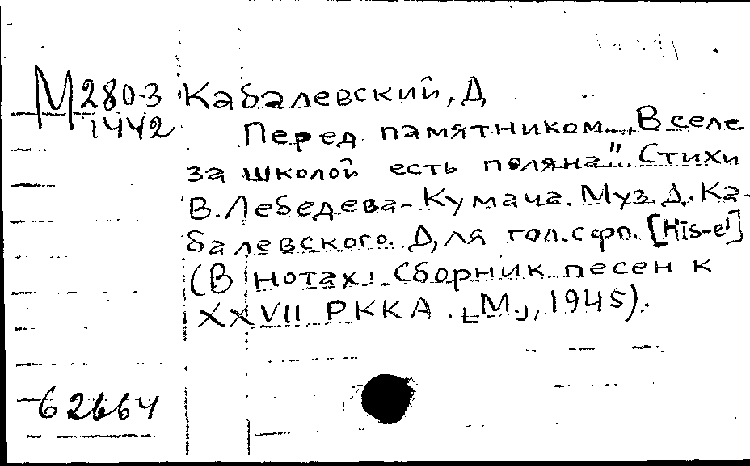 М 280-3 Кабалевский, Д
1442 Перед памятником „В селе
за школой есть поляна". Стихи
В. Лебедева-Кумача. Муз. Д. Ка-
балевского. Для гол. с фп. [His-e¹]
(В нотах: Сборник песен к
XXVII РККА. [М], 1945).
62664